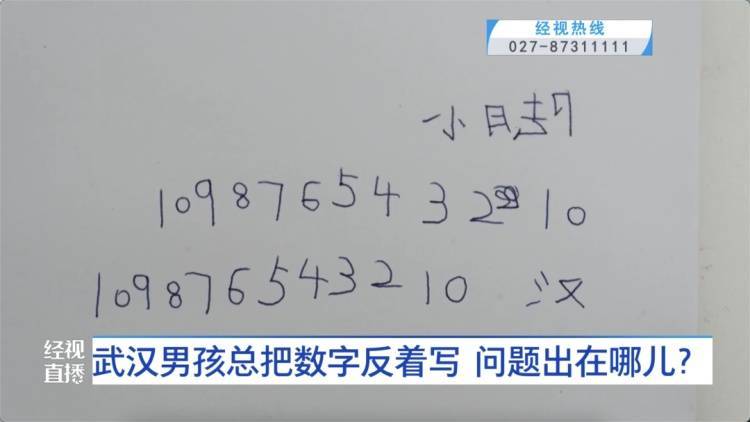 经视热线
027-87311111
一小日
1098765432 10
109876543210 汉
经视
直播
武汉男孩总把数字反着写 问题出在哪儿?